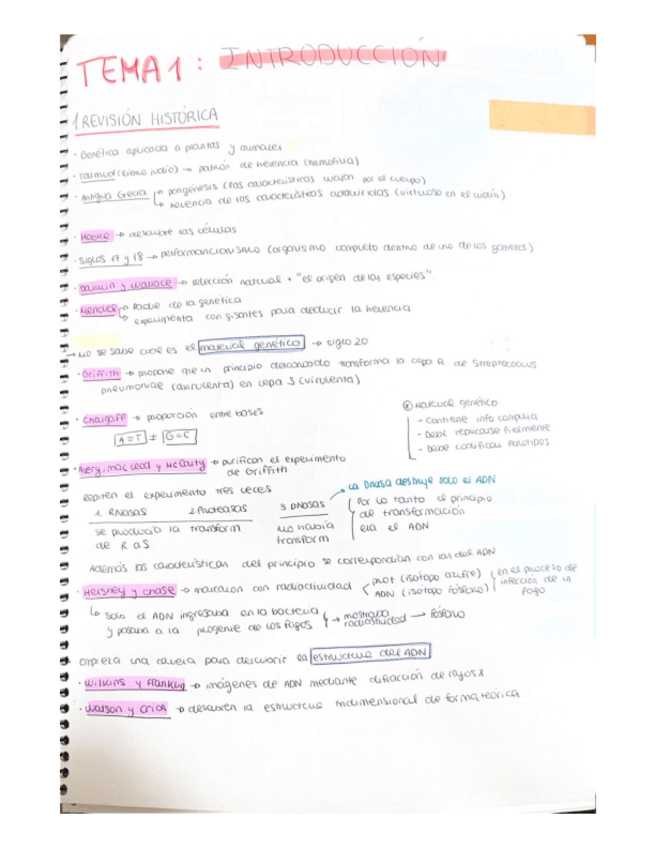 TEMA 1 : INTRODUCCIÓN
1 REVISIÓN HISTÓRICA
· Genética aplicada a plantas y animales
· Talmud (libro judío) → patrón de herencia (hemofilia)
· Antigua Grecia → pangénesis (las características viajan por el cuerpo)
↳ herencia de las características adquiridas (virtuoso en el violín)
· Hooke → descubre las células
· Siglos 17 y 18 → performancionismo (organismo completo dentro de uno de los gametos)
· Darwin y Wallace → selección natural + "el origen de las especies".
· Mendel → Padre de la genética
↳ experimenta con guisantes para deducir la herencia
→ no se sabe cual es el material genético → siglo 20
· Griffith → propone que un principio desconocido transforma la cepa R de Streptococcus
pneumoniae (avirulenta) en cepa S (virulenta)
· Chargaff → proporción entre bases
A=T ≠ G=C
* Material genético
- Contiene info compleja
- Debe replicarse fielmente
- Debe codificar fenotipos
· Avery, MacLeod y McCarty → purifican el experimento
de Griffith
Repiten el experimento tres veces
1. RNasas 2 Proteasas 3. DNasas
se producía la transform
de R a S
No había
transform
→ La DNasa destruye solo el ADN
Por lo tanto el principio
de transformación
era el ADN
Además las características del principio se correspondían con las del ADN
· Hershey y Chase → marcaron con radiactividad
prot (isótopo azufre)
ADN (isótopo fósforo)
en el proceso de
infección de un
fago
↳ Solo el ADN ingresaba en la bacteria
y pasaba a la progenie de los fagos
→ mostraba
radiactividad → fósforo
empieza una carrera para descubrir la estructura del ADN
· Wilkins y Franklin → imágenes de ADN mediante difracción de rayos X
· Watson y Crick → descubren la estructura tridimensional de forma teórica